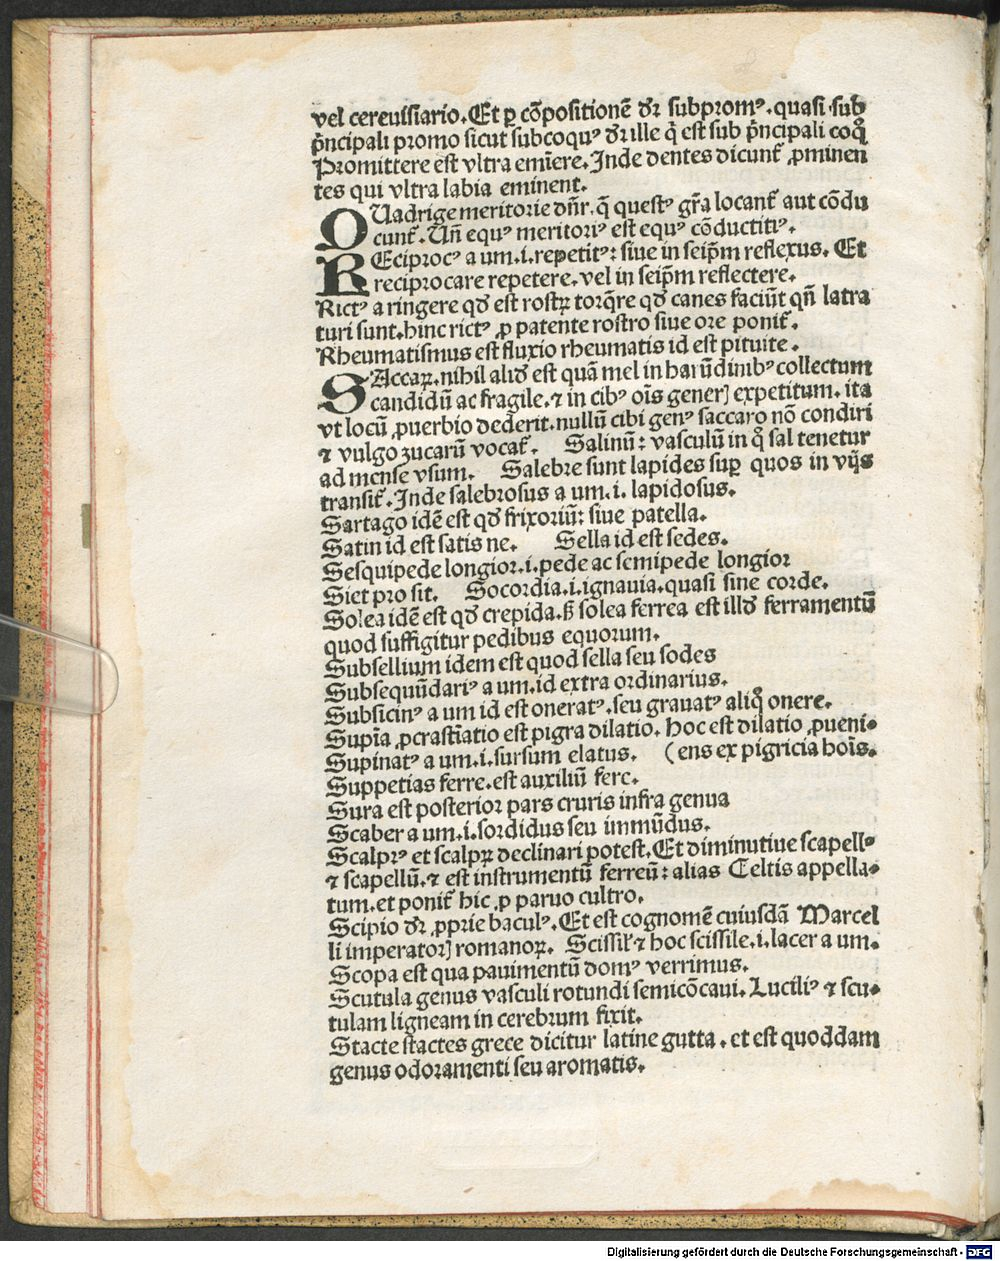 vel cereuisiario. Et ꝑ cōpositionē dr̄ subpromꝰ. quasi sub
p̄ncipali promo sicut subcoquꝰ dr̄ ille q̄ est sub p̄ncipali coq̊
Promittere est vltra emīere. Inde dentes dicunt̄ ꝓminen
tes qui vltra labia eminent.
QUadrige meritorie dn̄r. q̄ questꝰ gr̄a locant̄ aut cōdu
cunt̄. Un̄ equꝰ meritoriꝰ est equꝰ cōductitiꝰ.
REciprocꝰ a um. i. repetitꝰ: siue in seip̄m reflexus. Et
reciprocare repetere. vel in seip̄m reflectere.
Rictꝰ a ringere qd̄ est rostꝝ torq̄re qd̄ canes faciūt qn̄ latra
turi sunt. hinc rictꝰ ꝓ patente rostro siue ore ponit̄.
Rheumatismus est fluxio rheumatis id est pituite.
SAccaꝝ. nihil alid̄ est quā mel in harūdinibꝰ collectum
candidū ac fragile. ⁊ in cibꝰ oīs generꝭ expetitum. ita
vt locū ꝓuerbio dederit. nullū cibi genꝰ saccaro nō condiri
⁊ vulgo zucarū vocat̄. Salinū: vasculū in q̊ sal tenetur
ad mense vsum. Salebre sunt lapides suꝑ quos in vijs
transit̄. Inde salebrosus a um. i. lapidosus.
Sartago idē est qd̄ frixoriū: siue patella.
Satin id est satis ne. Sella id est sedes.
Sesquipede longior. i. pede ac semipede longior
Siet pro sit. Socordia. i. ignauia. quasi sine corde.
Solea idē est qd̄ crepida. ß solea ferrea est illd̄ ferramentū
quod suffigitur pedibus equorum.
Subsellium idem est quod sella seu sodes
Subsequūdariꝰ a um. id extra ordinarius.
Subsicinꝰ a um id est oneratꝰ. seu grauatꝰ aliq̊ onere.
Supīa ꝓcrastīatio est pigra dilatio. hoc est dilatio ꝓueni-
Supinatꝰ a um. i. sursum elatus. (ens ex pigricia hoīs.
Suppetias ferre. est auxiliū ferc.
Sura est posterior pars cruris infra genua
Scaber a um. i. sordidus seu immūdus.
Scalprꝰ et scalpꝝ declinari potest. Et diminutiue scapellꝰ
⁊ scapellū. ⁊ est instrumentū ferreū: alias Celtis appella-
tum. et ponit̄ hic ꝓ paruo cultro.
Scipio dr̄ ꝓprie baculꝰ. Et est cognomē cuiusdā Marcel
li imperatorꝭ romanoꝝ. Scissil̄ ⁊ hoc scissile. i. lacer a um.
Scopa est qua pauimentū domꝰ verrimus.
Scutula genus vasculi rotundi semicōcaui. Luciliꝰ ⁊ scu-
tulam ligneam in cerebrum fixit.
Stacte stactes grece dicitur latine gutta. et est quoddam
genus odoramenti seu aromatis.
Digitalisierung gefördert durch die Deutsche Forschungsgemeinschaft - DFG